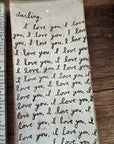 darling,
I love you, I love
you, I love you, I love
you, I love you, I love
you, I love you, I love
you, I love you, I love
I love you, I love you
I love you, I love you,
I love you, I love you,
I love you, I love you,
I love you, I love you
I love you, I love you,
I love you, I love you,
I love you, I love you,
I love you, I love